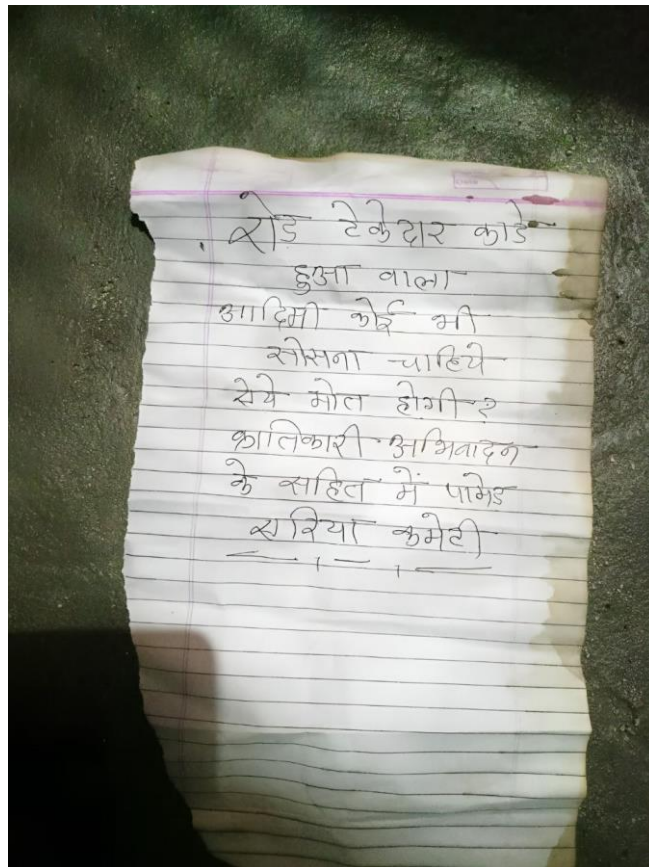 रोड टेकेदार काडे
हुआ वाला
आदिमी कोई भी
सोसना चाहिये
सेये मोत होगी?
कातिकारी अभिवादन
के सहित में पामेड
एरिया कमेटी